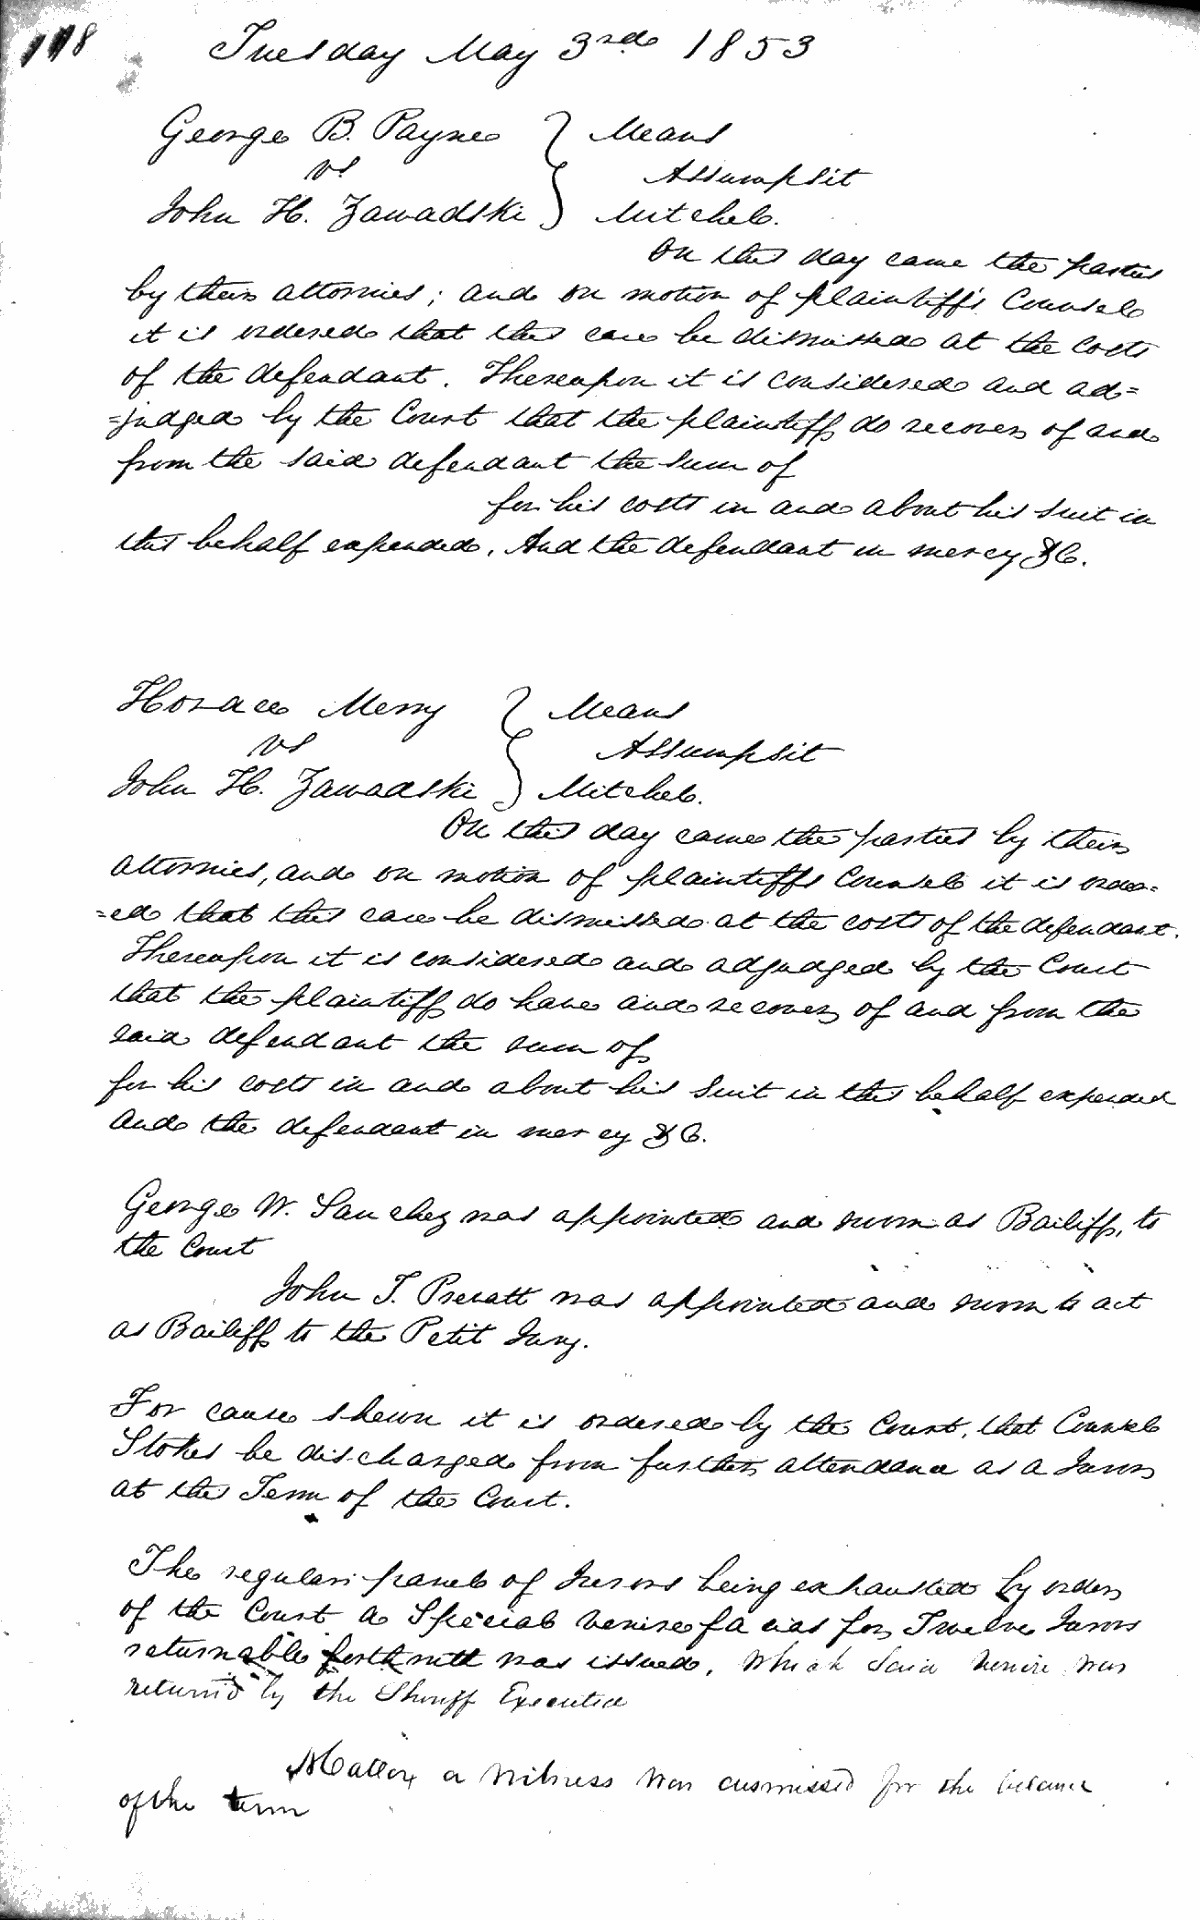 118
Tuesday May 3rd 1853
George B. Payne } Means
vs Assumpsit
John H. Zawadski } Mitchel.
On this day came the parties
by their attornies; and on motion of plaintiff's Counsel
it is ordered that this case be dismissed at the costs
of the defendant. Thereupon it is considered and ad=
=judged by the Court that the plaintiff do recover of and
from the said defendant the sum of
for his costs in and about his suit in
this behalf expended. And the defendant in mercy &C.
Horace Merry } Means
vs Assumpsit
John H. Zawadski } Mitchel.
On this day came the parties by their
attornies, and on motion of plaintiffs Counsel it is order=
=ed that this case be dismissed at the costs of the defendant.
Thereupon it is considered and adjudged by the Court
that the plaintiff do have and recover of and from the
said defendant the sum of
for his costs in and about his suit in this behalf expended
And the defendant in mercy &C.
George W. Sanchez was appointed and sworn as Bailiff, to
the Court
John T. was appointed and sworn to act
as Bailiff to the Petit Jury.
For cause shewn it is ordered by the Court, that
Stokes be discharged from further attendance as a Juror
at this Term of the Court.
The regular panel of Jurors being exhausted by order
of the Court a Special venire facias for Twelve Jurors
returnable forthwith was issued, which said venire was
returnd by the Sheriff Executed
a witness was dismissed for the balance
of the term